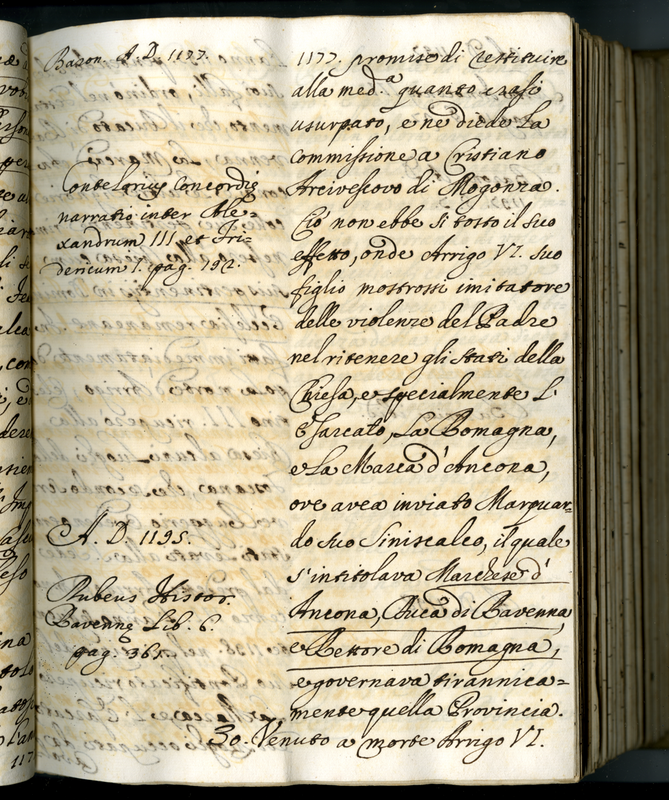 Baron. A. D. 1177.
Contelorius Concordię
narratio inter Ale=
xandrum III. et Fri-
dericum I. pag. 192.
A. D. 1195.
Rubeus Histor.
Ravennę Lib. 6.
pag. 365.
1177. promise di restituire
alla med.ª quanto erasi
usurpato, e ne diede la
commissione a Cristiano
Arcivescovo di Mogonza.
Ciò non ebbe sì tosto il suo
effetto, onde Arrigo VI. suo
figlio mostrossi imitatore
delle violenze del Padre
nel ritenere gli Stati della
Chiesa, e specialmente l'
Esarcato, La Romagna,
e La Marca d'Ancona,
ove avea inviato Marquar=
do suo Siniscalco, il quale
s'intitolava Marchese d'
Ancona, Duca di Ravenna
e Rettore di Romagna,
e governava tirannica=
mente quella Provincia.
30. Venuto a morte Arrigo VI.